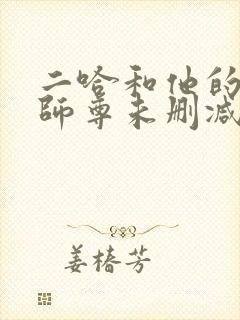 二哈和他的
师尊未删减
姜椿芳